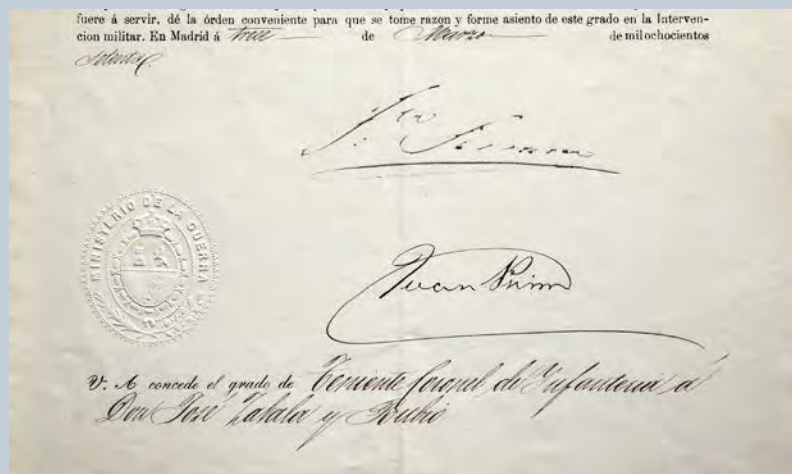 fuere á servir, dé la órden conveniente para que se tome razon y forme asiento de este grado en la Interven-
cion militar. En Madrid á trece de Marzo de mil ochocientos
setenta.
Fco Serrano
MINISTERIO DE LA GUERRA
Juan Prim
V. A concede el grado de Teniente Coronel de Infanteria á
Don José Zabala y Rubio